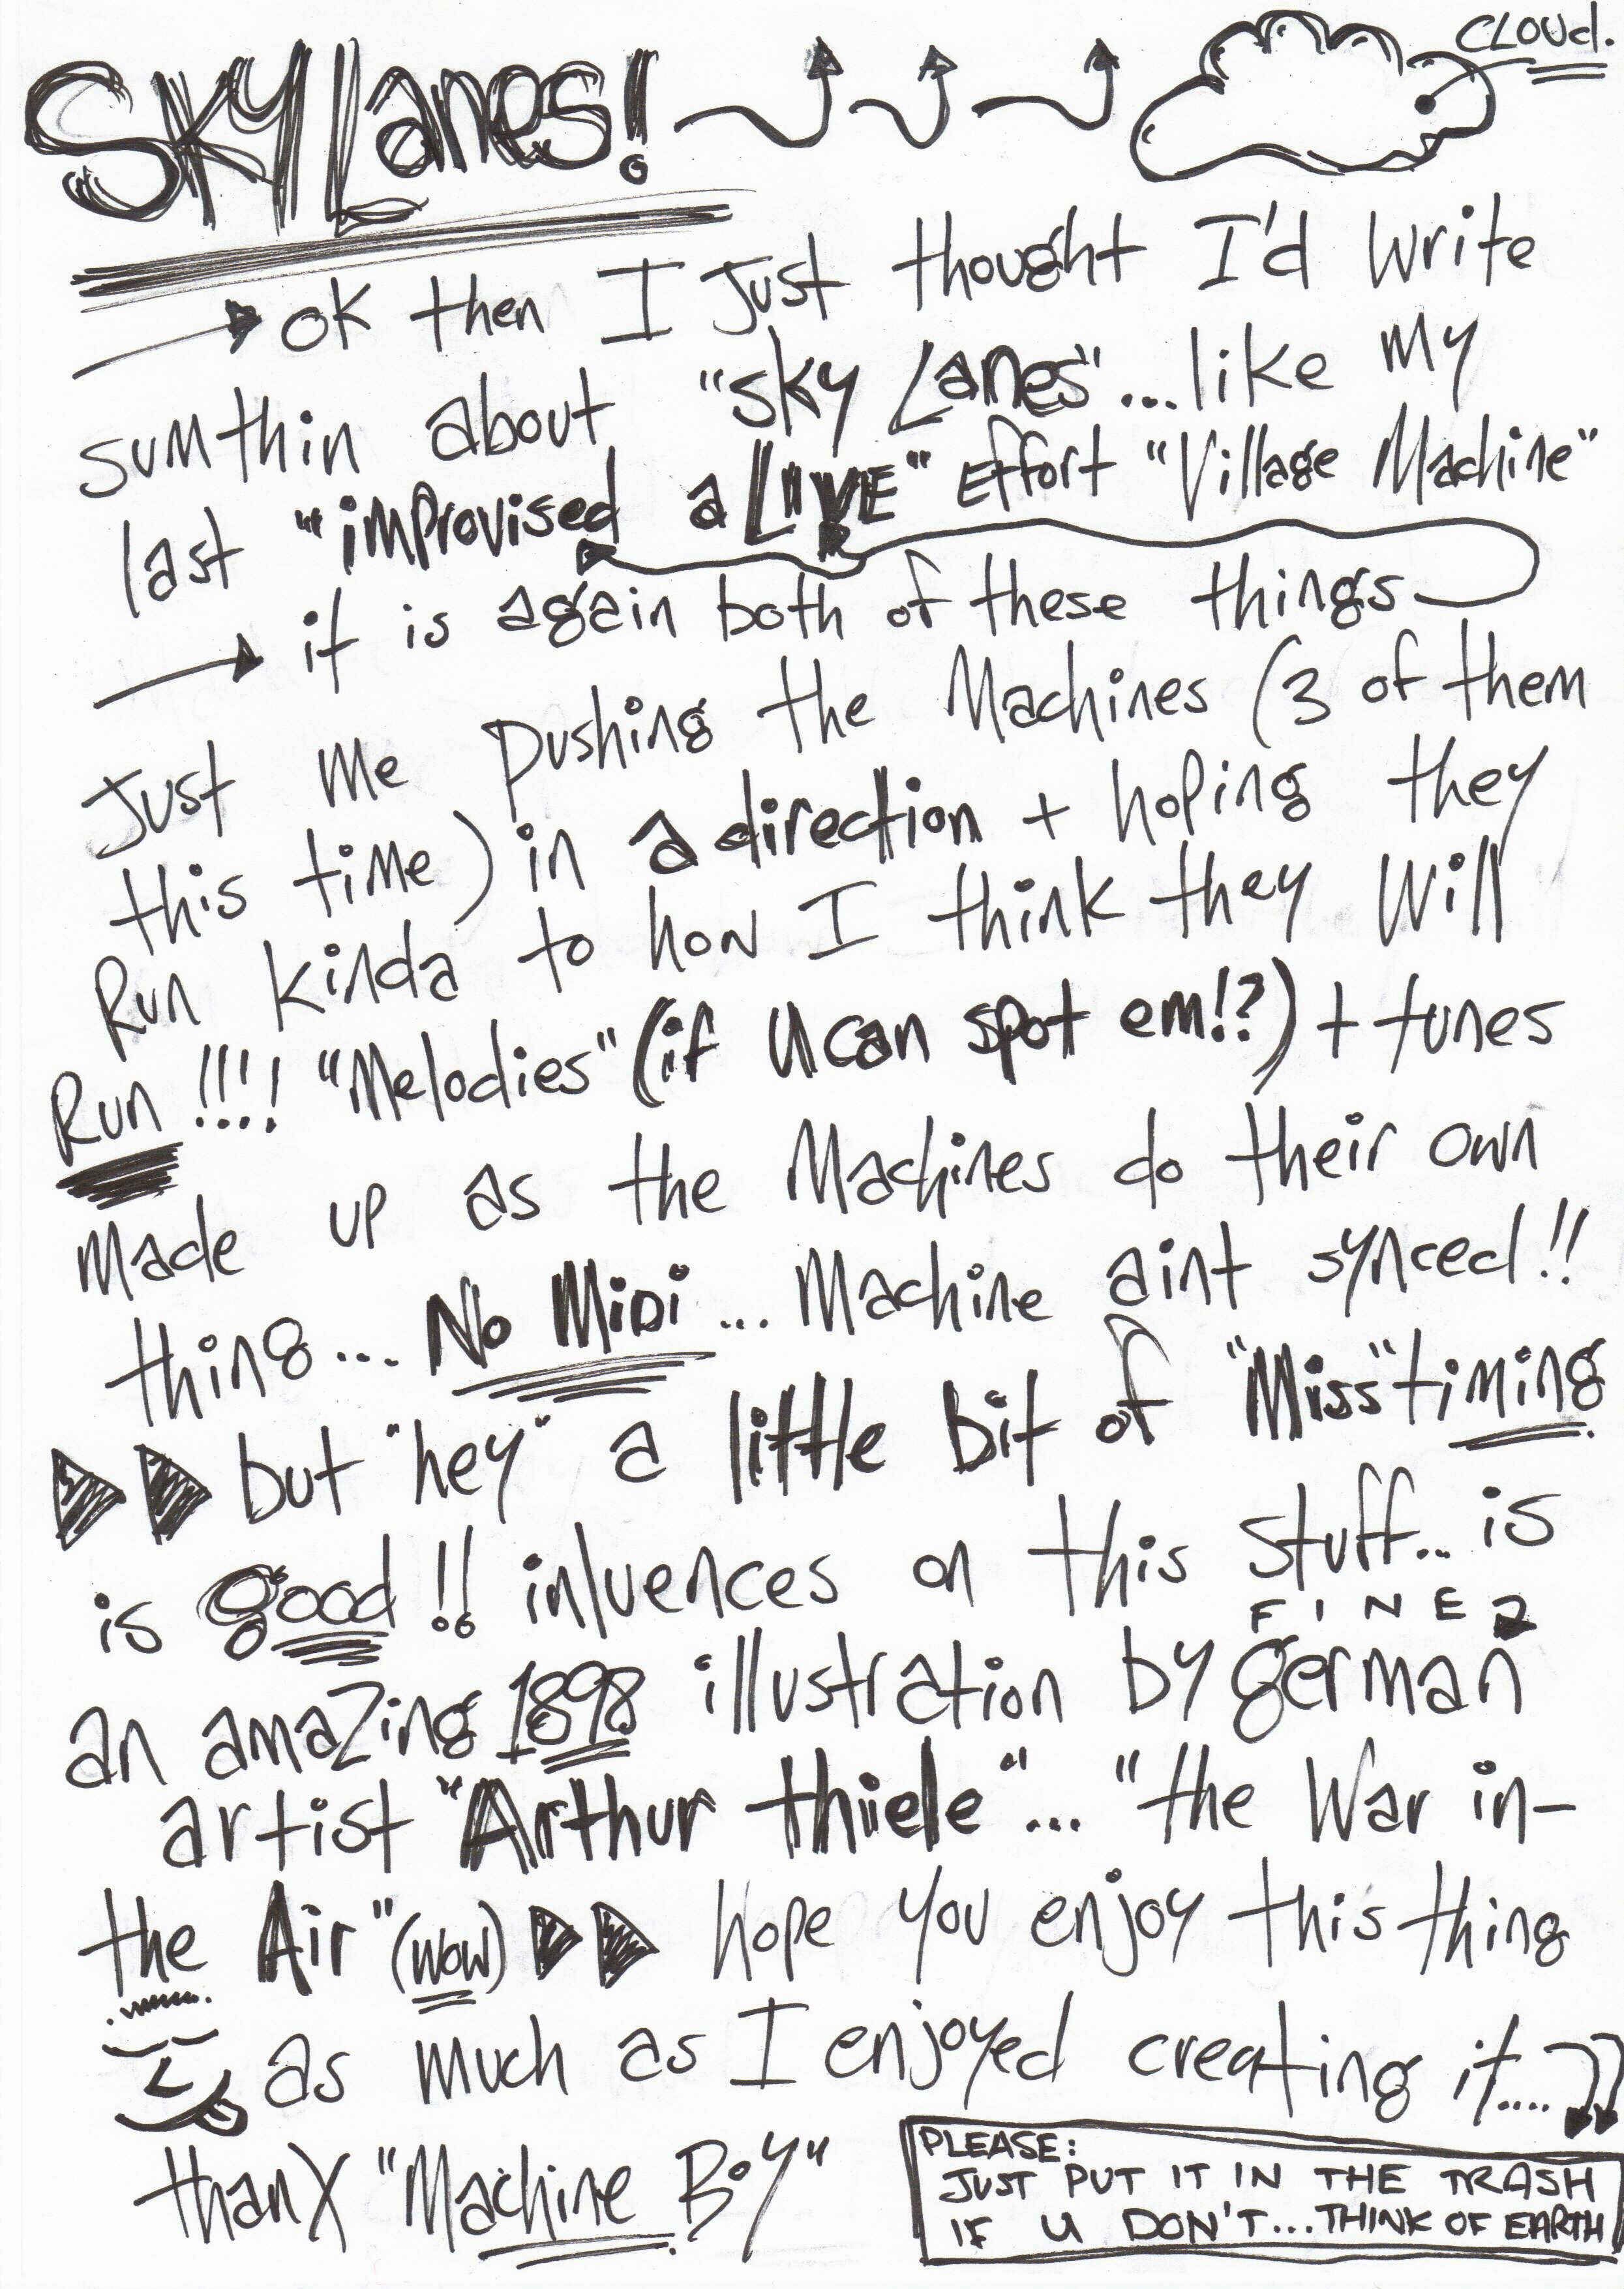 SKY Lanes!
CLOUd.
ok then I Just thought I'd Write
sumthin about "sky Lanes"...like My
last "improvised aLIVE" Effort "Village Machine"
it is again both of these things
Just Me pushing the Machines (3 of them
this time) in a direction + hoping they
Run kinda to how I think they Will
Run!!!! "Melodies" (if u can spot em!?) + tunes
Made up as the Machines do their own
thing... No MiDi... Machine aint synced!!
but "hey" a little bit of "Miss"timing
is good!! inluences on this stuff... is
FINE
an amaZing 1898 illustration by german
artist "Arthur thiele"... "the War in-
the Air" (wow) hope you enjoy this thing
as much as I enjoyed creating it....
thanX "Machine BoY"
PLEASE:
JUST PUT IT IN THE TRASH
IF U DON'T...THINK OF EARTH